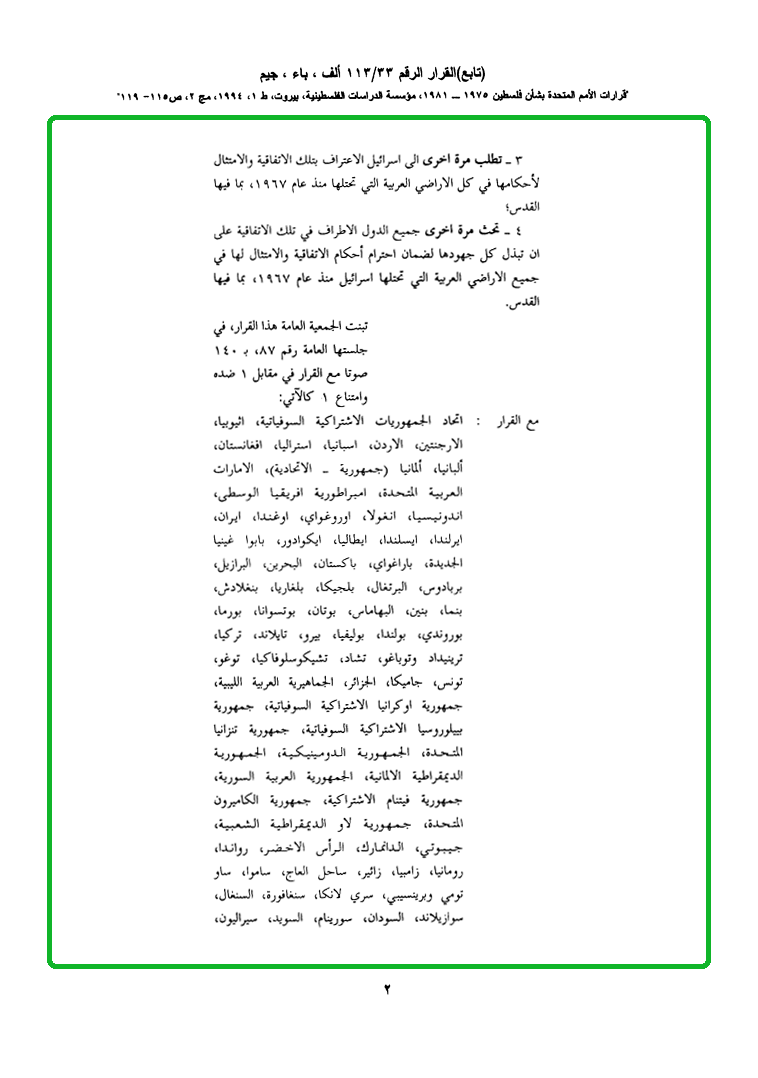 (تابع)القرار الرقم ١١٣/٣٣ ألف ، باء ، جيم
"قرارات الأمم المتحدة بشأن فلسطين ١٩٧٥ ــ ١٩٨١، مؤسسة الدراسات الفلسطينية، بيروت، ط ١، ١٩٩٤، مج ٢، ص١١٥- ١١٩"
٣ ـ تطلب مرة اخرى الى اسرائيل الاعتراف بتلك الاتفاقية والامتثال
لأحكامها في كل الاراضي العربية التي تحتلها منذ عام ١٩٦٧، بما فيها
القدس؛
٤ ـ تحث مرة اخرى جميع الدول الاطراف في تلك الاتفاقية على
ان تبذل كل جهودها لضمان احترام أحكام الاتفاقية والامتثال لها في
جميع الاراضي العربية التي تحتلها اسرائيل منذ عام ١٩٦٧، بما فيها
القدس.
تبنت الجمعية العامة هذا القرار، في
جلستها العامة رقم ٨٧، بـ ١٤٠
صوتا مع القرار في مقابل ١ ضده
وامتناع ١ كالآتي:
مع القرار : اتحاد الجمهوريات الاشتراكية السوفياتية، اثيوبيا،
الارجنتين، الاردن، اسبانيا، استراليا، افغانستان،
ألبانيا، ألمانيا (جمهورية ـ الاتحادية)، الامارات
العربية المتحدة، امبراطورية افريقيا الوسطى،
اندونيسيا، انغولا، اوروغواي، اوغندا، ايران،
ايرلندا، ايسلندا، ايطاليا، ايكوادور، بابوا غينيا
الجديدة، باراغواي، باكستان، البحرين، البرازيل،
بربادوس، البرتغال، بلجيكا، بلغاريا، بنغلادش،
بنما، بنين، البهاماس، بوتان، بوتسوانا، بورما،
بوروندي، بولندا، بوليفيا، بيرو، تايلاند، تركيا،
ترينيداد وتوباغو، تشاد، تشيكوسلوفاكيا، توغو،
تونس، جاميكا، الجزائر، الجماهيرية العربية الليبية،
جمهورية اوكرانيا الاشتراكية السوفياتية، جمهورية
بييلوروسيا الاشتراكية السوفياتية، جمهورية تنزانيا
المتحدة، الجمهورية الدومينيكية، الجمهورية
الديمقراطية الالمانية، الجمهورية العربية السورية،
جمهورية فيتنام الاشتراكية، جمهورية الكاميرون
المتحدة، جمهورية لاو الديمقراطية الشعبية،
جيبوتي، الدانمارك، الرأس الاخضر، رواندا،
رومانيا، زامبيا، زائير، ساحل العاج، ساموا، ساو
تومي وبرينسيبي، سري لانكا، سنغافورة، السنغال،
سوازيلاند، السودان، سورينام، السويد، سيراليون،
٢